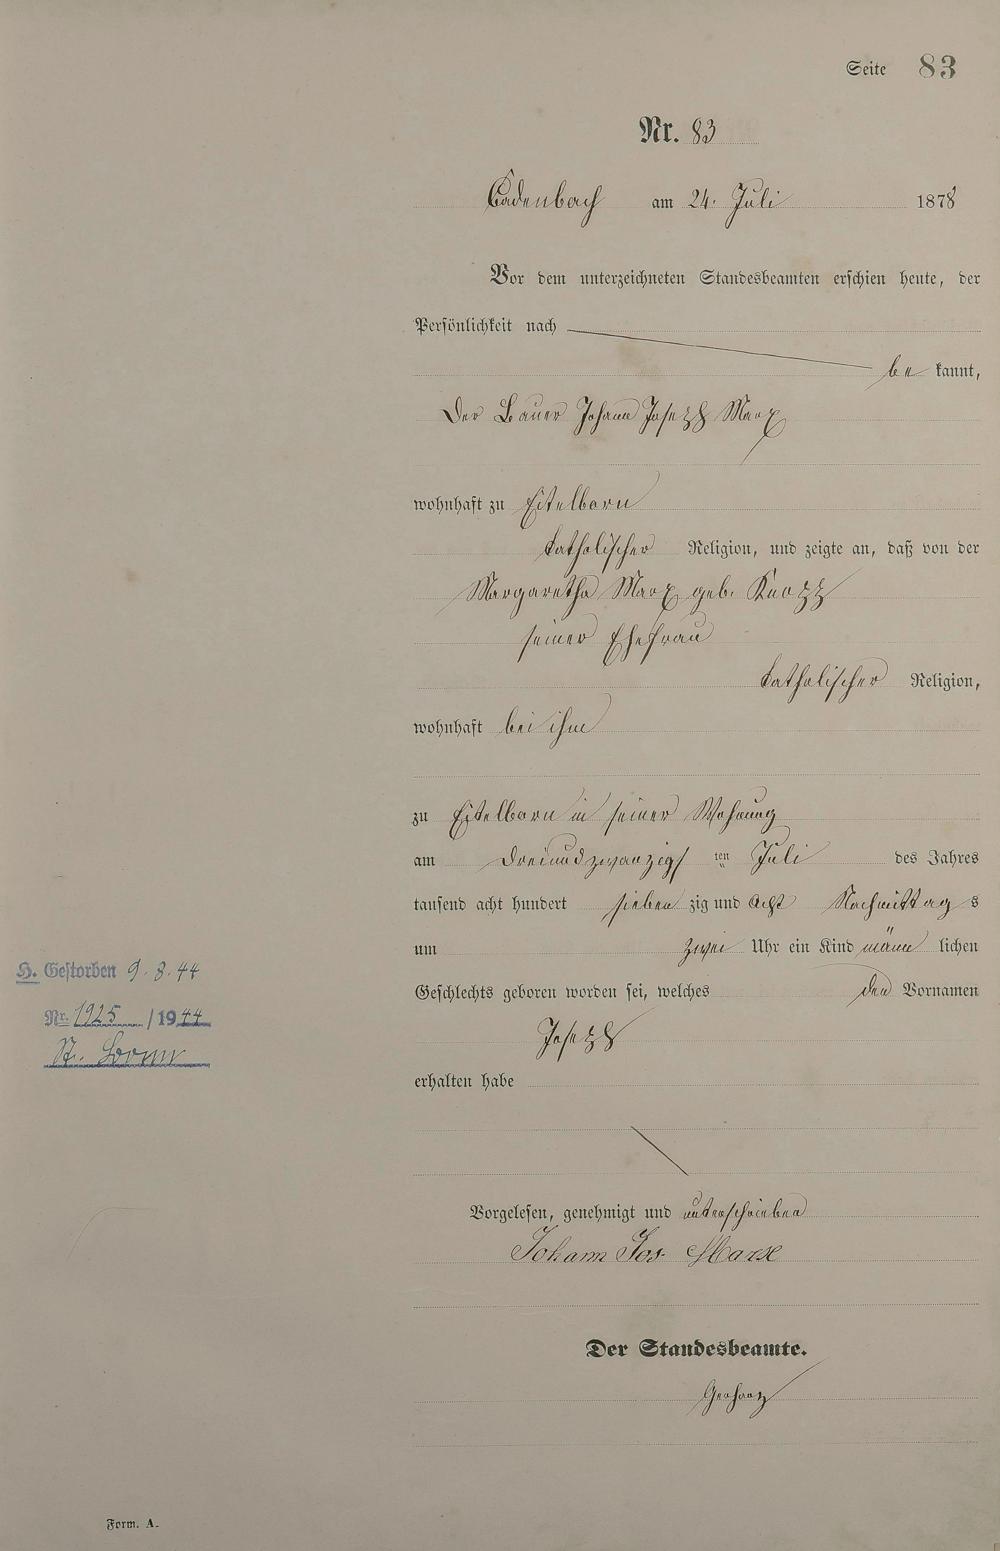 Seite 83
Nr. 83
Cadenbach am 24. Juli 1878
Vor dem unterzeichneten Standesbeamten erschien heute, der
Persönlichkeit nach
be kannt,
der Bauer Johann Joseph Marx
wohnhaft zu Eitelborn
katholischer Religion, und zeigte an, daß von der
Margaretha Marx geb. Knopp
seiner Ehefrau
katholischer Religion,
wohnhaft bei ihm
zu Eitelborn in seiner Wohnung
am dreiundzwanzigs ten Juli des Jahres
tausend acht hundert sieben zig und acht Nachmittag s
um zwei Uhr ein Kind männ lichen
Geschlechts geboren worden sei, welches den Vornamen
Joseph
erhalten habe
H. Gestorben 9.8.44
Nr. 1925 / 1944
St.
Vorgelesen, genehmigt und unterschrieben
Johann Jos. Marx
Der Standesbeamte.
Gerharz
Form. A.